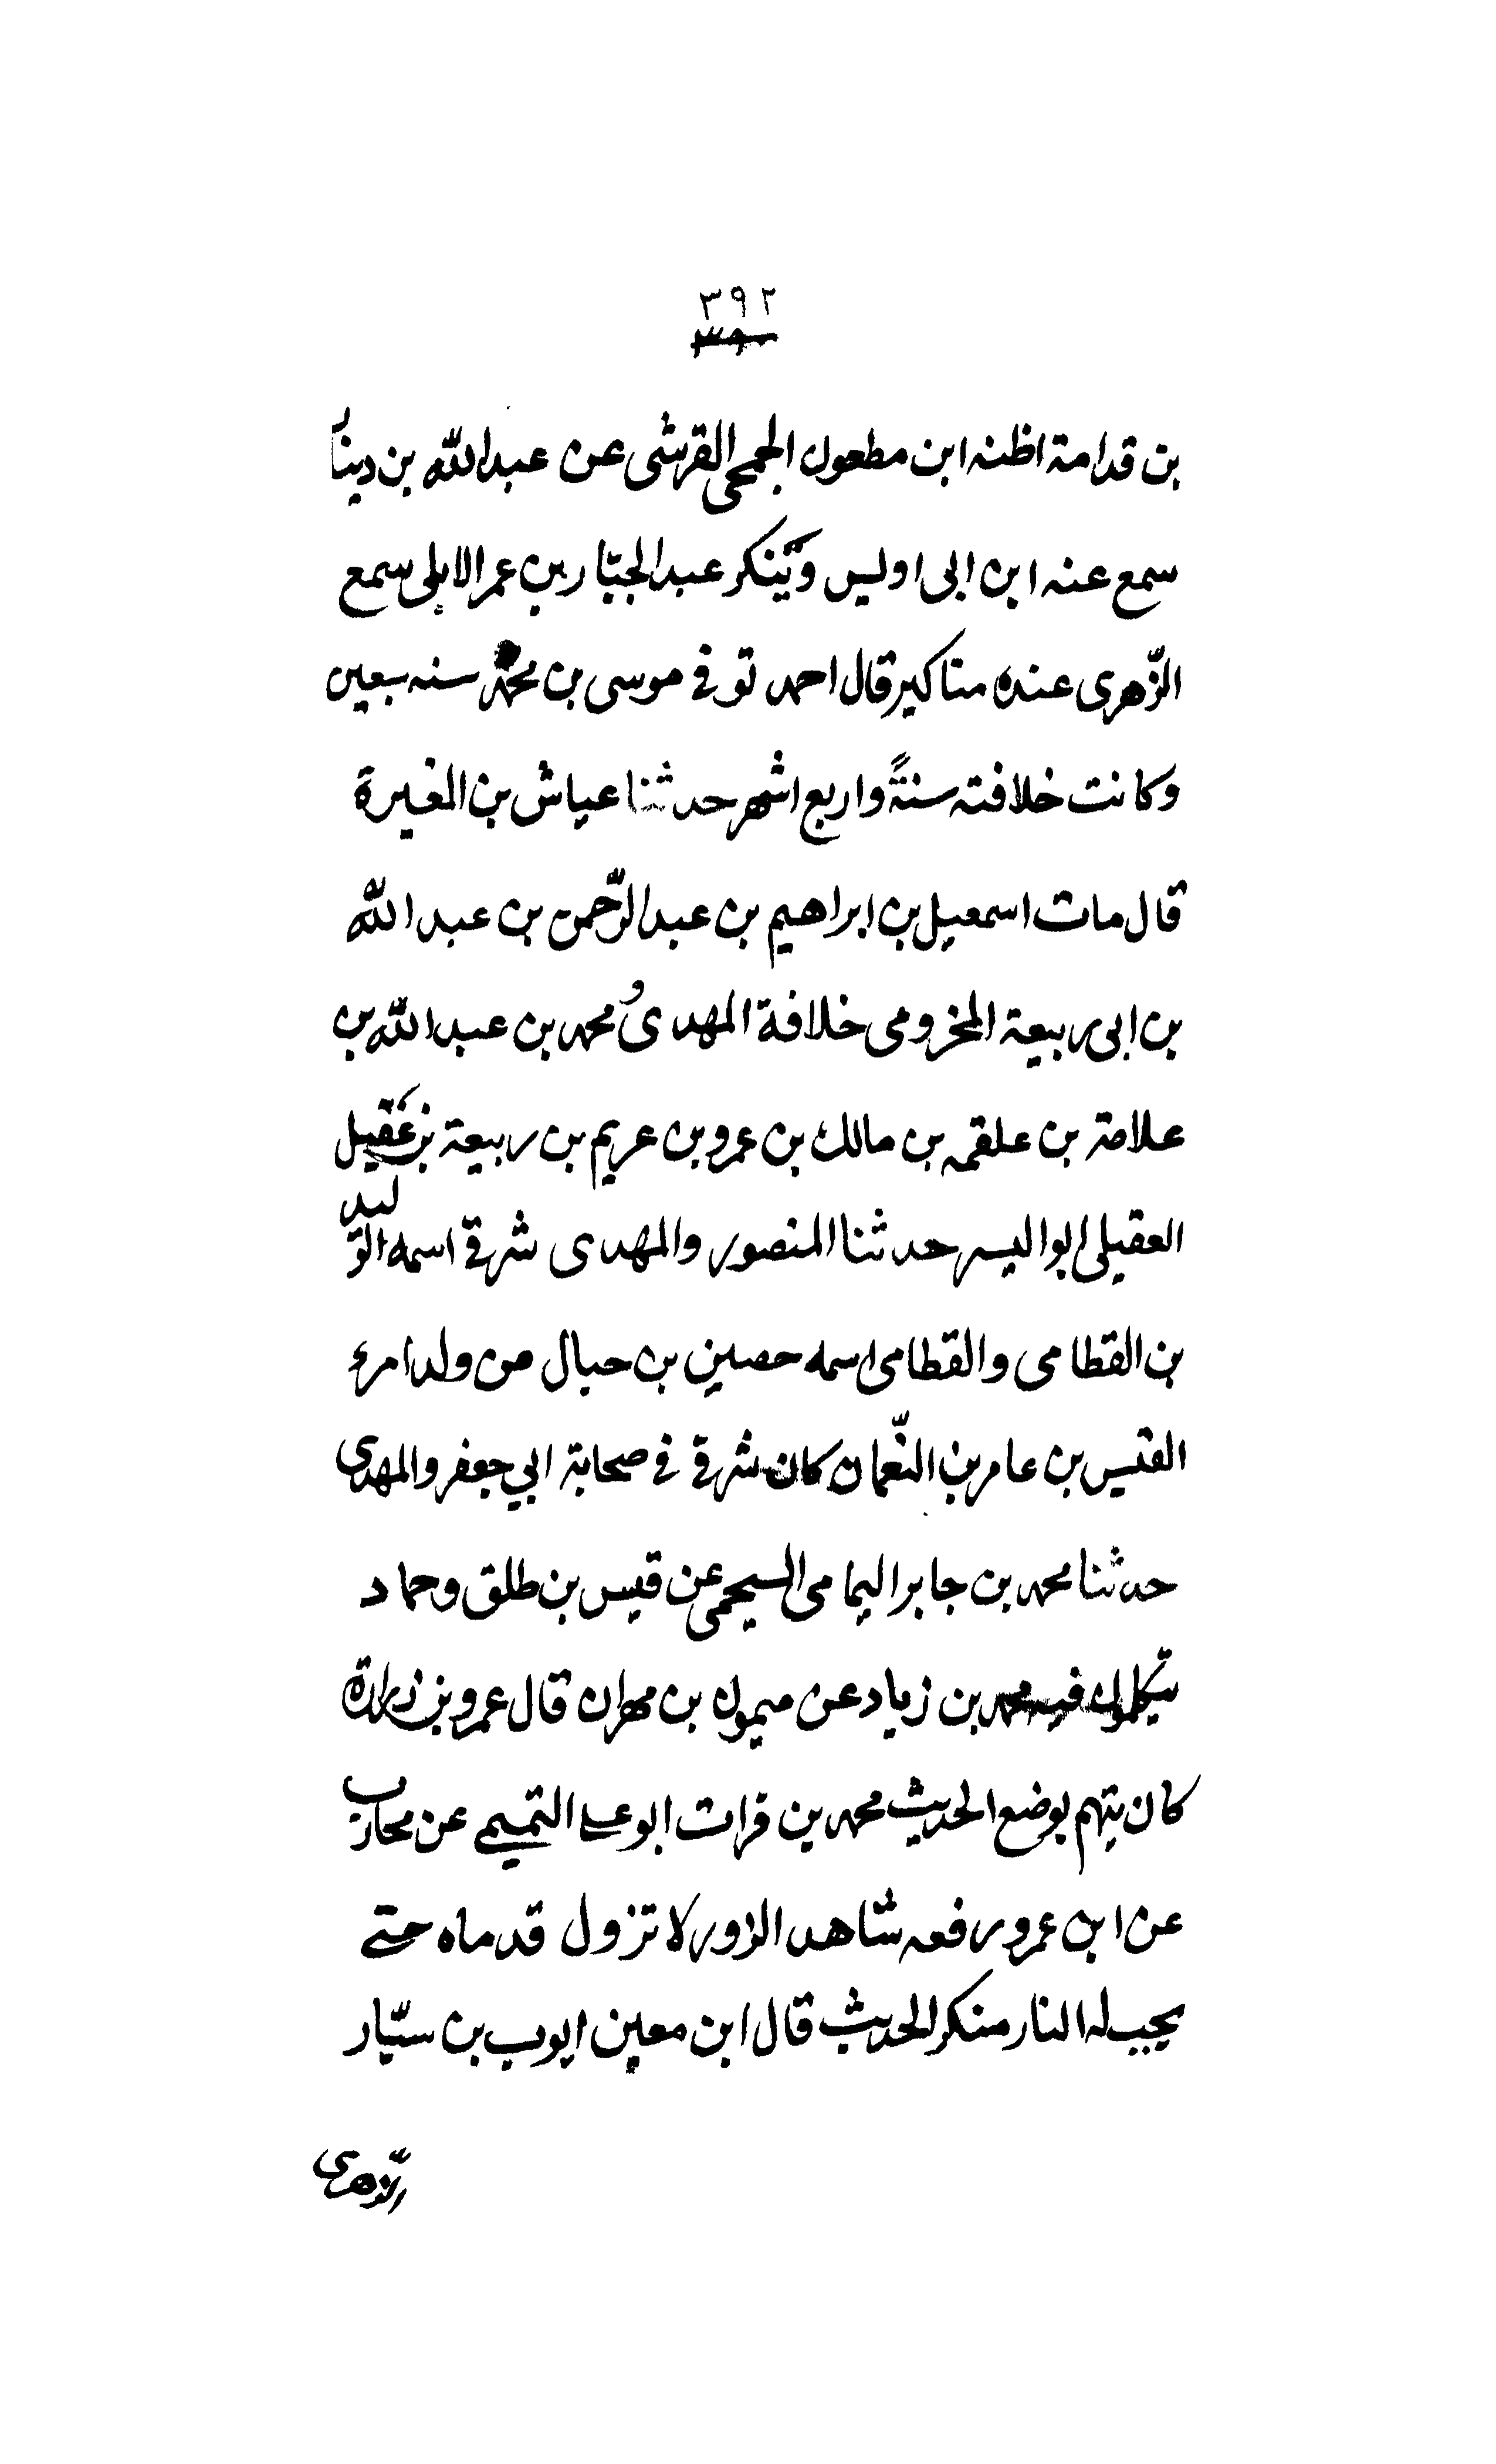 ٣٩٢
بن قدامة اظنه ابن مطعون الجمحي القرشى عن عبدالله بن دينار
سمع عنه ابن ابى اوليس وَيُنكر عبدالجبّار بن عمر الايلى سمع
الزّهرى عنده مناكير قال احمد توفى موسى بن محمد سنه سبعين
وكانت خلافته سنةً واربع اشهر حدثنا عياش بن المغيرة
قال مات اسمعيل بن ابراهيم بن عبدالرّحمن بن عبدالله
بن ابى ربيعة المخزومى خلافة المهدىُ محمد بن عبدالله بن
علاصة بن علقمه بن مالك بن عمرو بن عريم بن ربيعة بن عَقيل
العقيلى ابواليسر حدثنا المنصور والمهدى شرقى اسمه الوليد
بن القطامى والقطامى اسمه حصين بن حبال من ولد امرء
القيس بن عامر بن النّعمان كان شرقى فى صحابة ابي جعفر والمهدى
حدثنا محمد بن جابر اليمامى السيحمى عن قيس بن طلق وحماد
يتكلمون فيه محمد بن زياد عن ميمون بن مهران قال عمرو بن زرارة
كان يتهم بوضع الحديث محمد بن فرات ابوعلى التميمى عن محارب
عن ابن عمرو رفعه شاهد الزاور لا تزول قدماه حتى
يجب له النار منكر الحديث قال ابن معين ايوب بن سيّار
الزّهرى